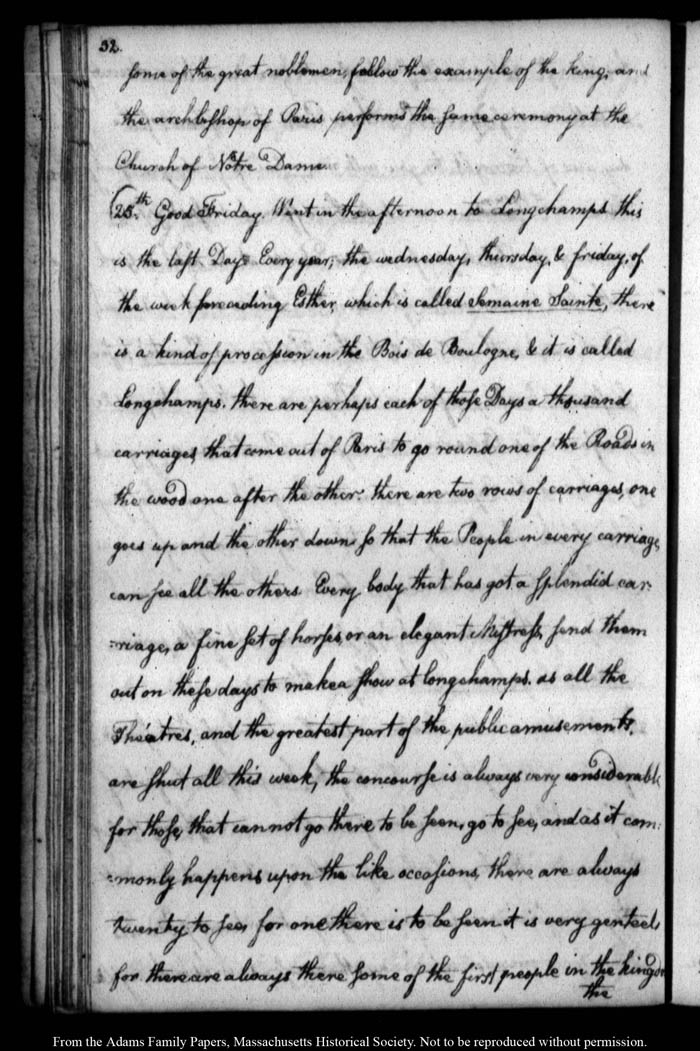 32.
some of the great noblemen, follow the example of the king, and
the archbishop of Paris performs the same ceremony at the
Church of Nôtre Dame.
25.th Good Friday. Went in the afternoon to Longchamps this
is the last Day. Every year, the wednesday, thursday, & friday, of
the week preceeding Esther, which is called Semaine Sainte, there
is a kind of procession in the Bois de Boulogne, & it is called
Longchamps. there are perhaps each of those Days a thousand
carriages, that come out of Paris to go round one of the Roads in
the wood one after the other. there are two rows of carriages, one
goes up and the other down so that the People in every carriage,
can see all the others. Every body that has got a splendid car-
-riage, a fine set of horses, or an elegant Mistress, send them
out on these days to make a show at Longchamps. as all the
Théatres, and the greatest part of the public amusements,
are shut all this week, the concourse is always very considerable
for those, that cannot go there to be seen, go to see, and as it com-
-monly happens upon the like occasions, there are always
twenty to see, for one there is to be seen it is very genteel,
for there are always there some of the first people in the kingdo
the
From the Adams Family Papers, Massachusetts Historical Society. Not to be reproduced without permission.